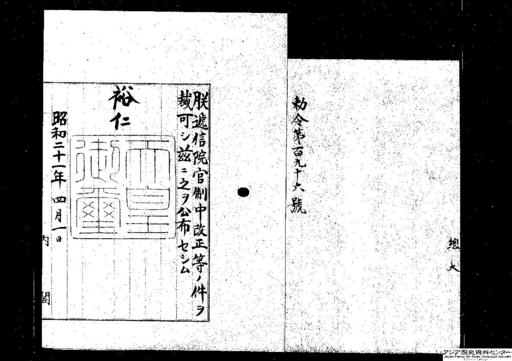 勅令第百九十六號
總大
朕遞信院官制中改正等ノ件ヲ
裁可シ茲ニ之ヲ公布セシム
裕仁
天皇御璽
昭和二十一年四月一日
內閣
アジア歴史資料センター